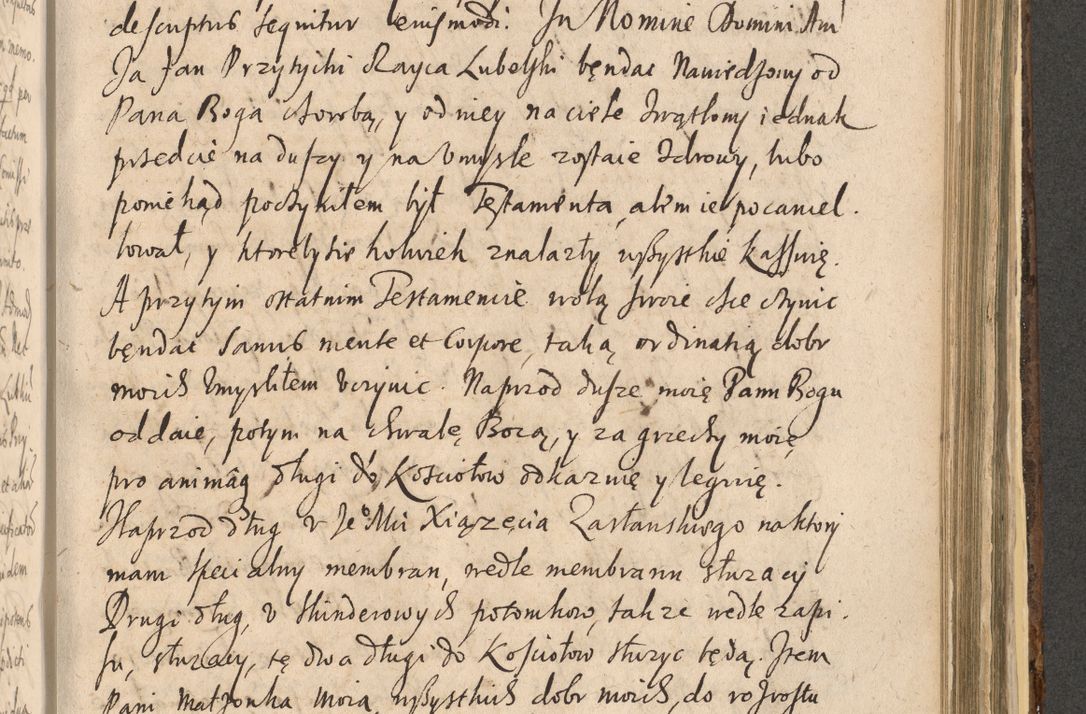 descriptus sequitur eiusmodi. In Nomine Domini Am
Ja Jan Przytycki Rayca Lubelski bęndąc Nawiedzony od
Pana Boga chorobą, y od niey na ciele zwątlony iednak
przedcie na duszy y na Vmysle zostaie zdrowy, lubo
poniekąd poczyniłem był Testamenta, alem ie pocancel.
lował, y ktorebysie kolwiek znalazły wszystkie kassuię.
A przytym ostatnim Testamencie wolą swoie chce czynic
bęndąc Sanus mente et Corpore, taką ordinatią dobr
moich Vmysliłem Vczynic. Naprzod dusze moię Panu Bogu
oddaie, potym na chwalę Bożą, y za grzechy moię
pro animab9 długi do Kosciołow odkazuię y leguię.
Naprzod dług v Je°Mci Xiązęcia Zasłauskiego na ktory
mam specialny membran, wedle membranu słuzący
Drugi dług, v Skinderowych potomkow, takze wedle zapi.
su, słuzący, tę dwa długi do Kosciołow słuzyc będą. Item
Pani Małzonka moia wszystkich dobr moich, do rozrostu